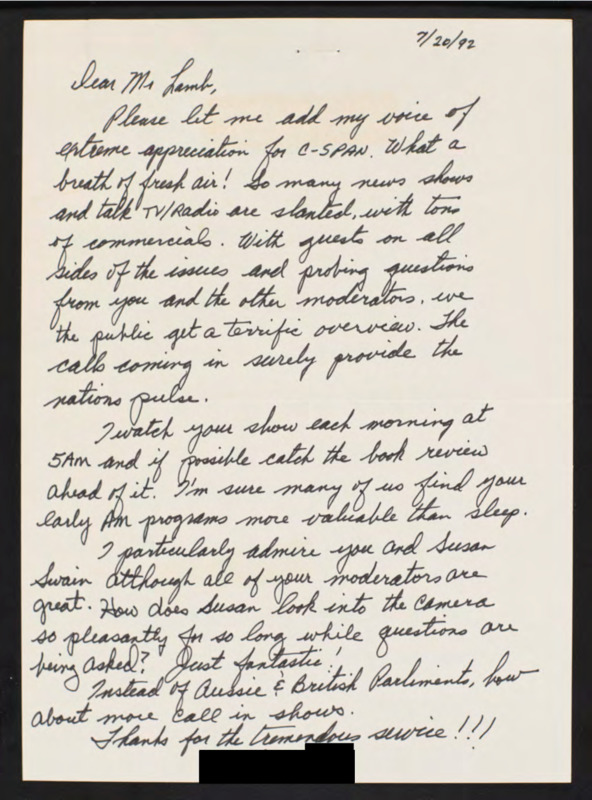 7/20/92
Dear Mr Lamb,
Please let me add my voice of
extreme appreciation for C-SPAN. What a
breath of fresh air! So many news shows
and talk TV/Radio are slanted, with tons
of commercials. With guests on all
sides of the issues and probing questions
from you and the other moderators, we
the public get a terrific overview. The
calls coming in surely provide the
nations pulse.
I watch your show each morning at
5AM and if possible catch the book review
ahead of it. I'm sure many of us find your
early AM programs more valuable than sleep.
I particularly admire you and Susan
Swain although all of your moderators are
great. How does Susan look into the camera
so pleasantly for so long while questions are
being asked? Just fantastic!
Instead of Aussie & British Parliments, how
about more call in shows.
Thanks for the tremendous service!!!